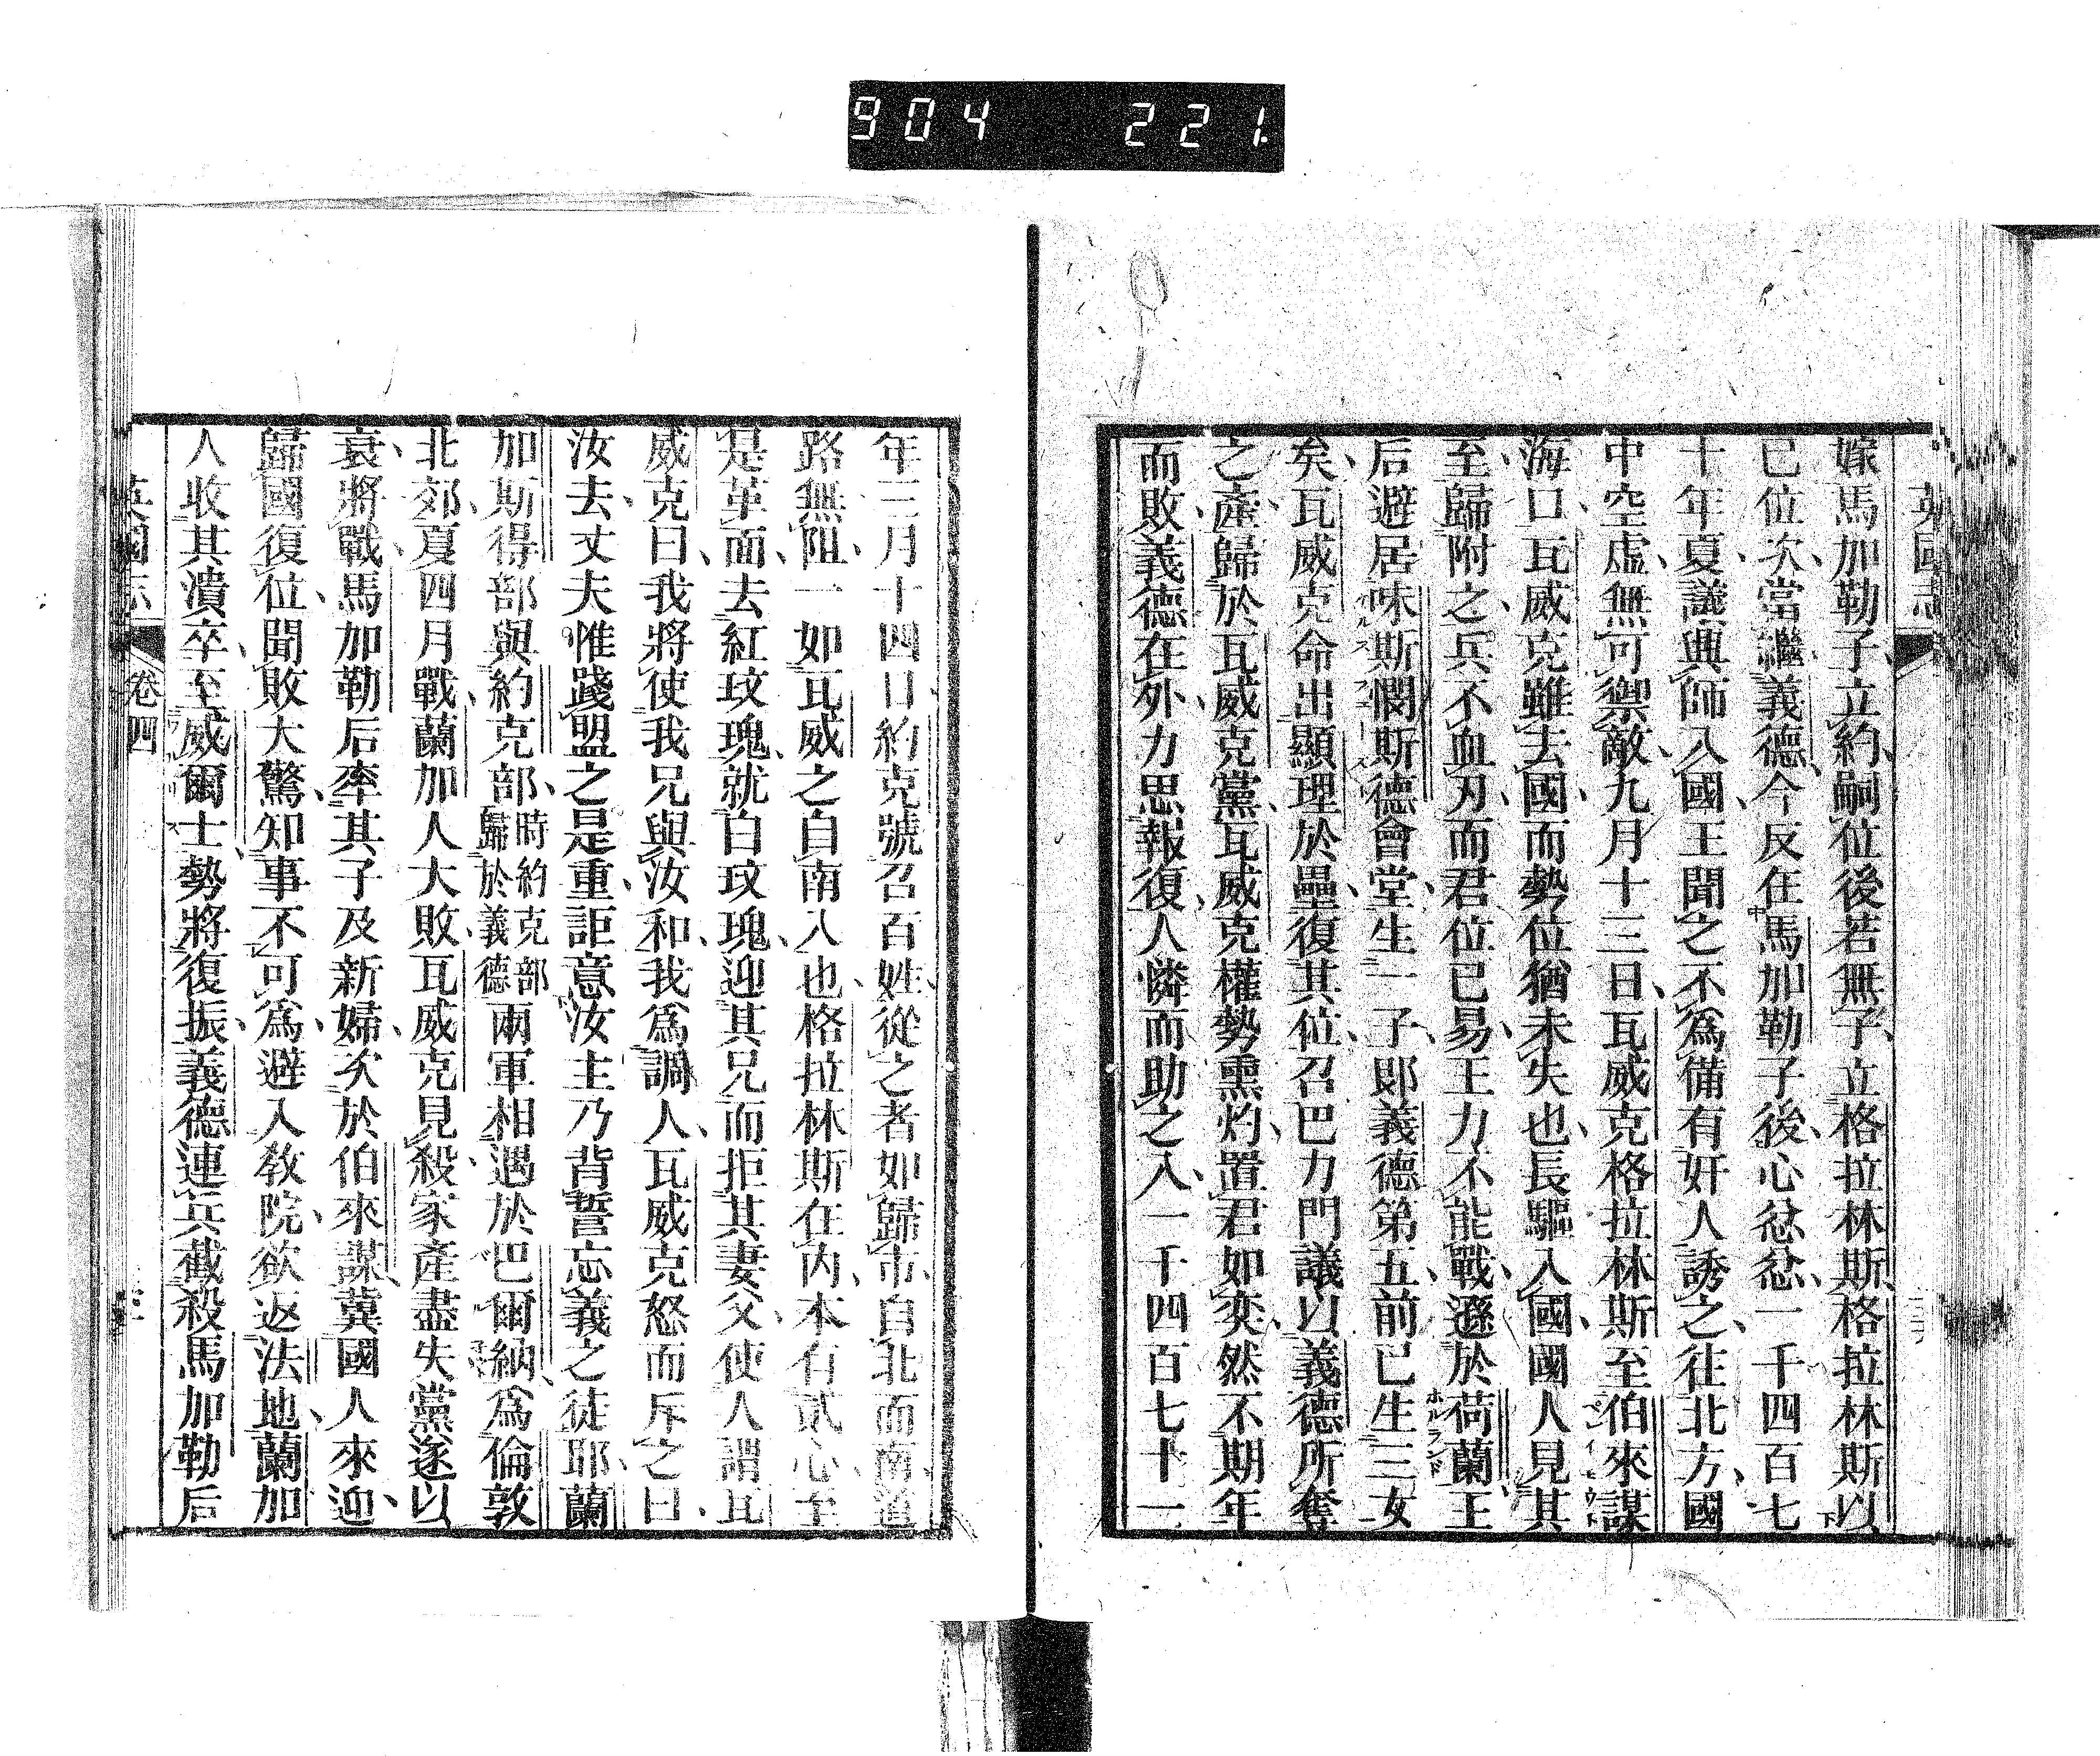 904 221
英國志
嫁馬加勒子立約嗣位後若無子立格拉林斯格拉林斯以
已位次當繼義德今反在馬加勒子後心忿忿一千四百七
十年夏議興師入國王聞之不為備有奸人誘之往北方國
中空虛無可禦敵九月十三日瓦威克格拉林斯至伯來謀
海口瓦威克雖去國而勢位猶未失也長驅入國國人見其
至歸附之兵不血刃而君位已易王力不能戰遜於荷蘭王
ホルランド
后避居味斯憫斯德會堂生一子郎義德第五前已生三女
矣瓦威克命出顯理於壘復其位召巴力門議以義德所奪
之產歸於瓦威克黨瓦威克權勢熏灼置君如奕然不期年
而敗義德在外力思報復人憐而助之入一千四百七十一
年三月十四日約克號召百姓從之者如歸市自北而南道
路無阻一如瓦威之自南入也格拉林斯在內本有貳心至
是革面去紅玟瑰就白玟瑰迎其兄而拒其妻父使人謂瓦
威克曰我將使我兄與汝和我為調人瓦威克怒而斥之曰
汝去丈夫惟踐盟之是重詎意汝主乃背誓忘義之徒耶蘭
加斯得部與約克部時約克部歸於義德兩軍相遇於巴爾納為倫敦
北郊夏四月戰蘭加人大敗瓦威克見殺家產盡失黨遂以
衰將戰馬加勒后率其子及新婦次於伯來謀冀國人來迎
歸國復位聞敗大驚知事不可為避入教院欲返法地蘭加
人收其潰卒至威爾士勢將復振義德連兵截殺馬加勒后
英國志
卷四